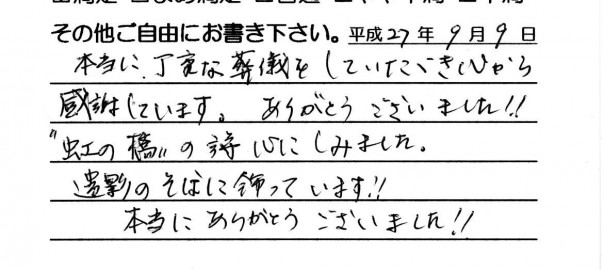 その他ご自由にお書き下さい。平成27年9月9日
本当に、丁寧な葬儀をしていただき心から
感謝しています。ありがとうございました!!
"虹の橋"の詩心にしみました。
遺影のそばに飾っています!!
本当にありがとうございました!!